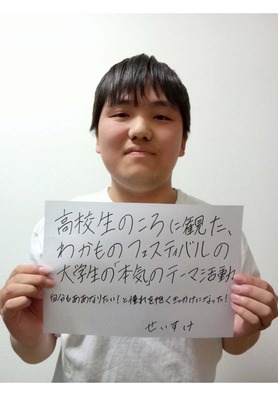 高校生のころに観た、
わかものフェスティバルの
大学生の「本気」のテーマ活動
自分もああなりたい！と憧れを抱くきっかけになった！
せいすけ